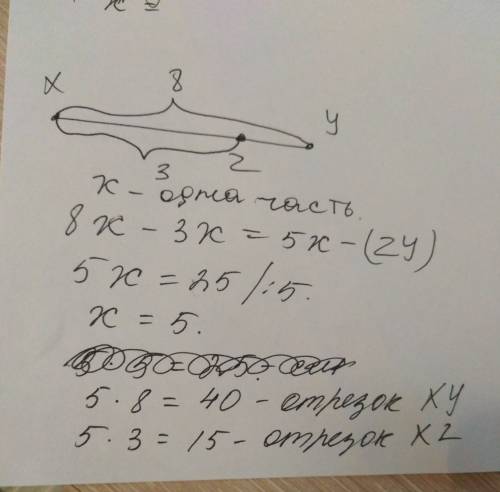 x =
X 8 У
3 Z
x - одна часть.
8x - 3x = 5x - (ZУ)
5x = 25 /:5.
x = 5.
5 · 8 = 40 - отрезок ХУ
5 · 3 = 15 - отрезок XZ